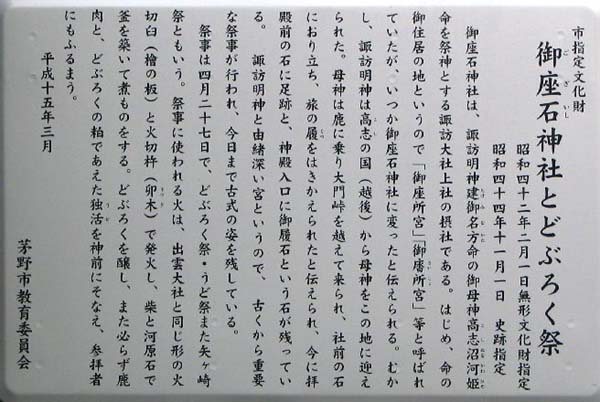 市指定文化財
御座石神社とどぶろく祭
昭和四十二年二月一日無形文化財指定
昭和四十四年十一月一日　史跡指定
御座石神社は、諏訪明神建御名方命の御母神高志沼河姫
命を祭神とする諏訪大社上社の摂社である。はじめ、命の
御住居の地というので「御座所宮」「御所宮」等と呼ばれ
ていたが、いつか御座石神社に変ったと伝えられる。むか
し、諏訪明神は高志の国（越後）から母神をこの地に迎え
られた。母神は鹿に乗り大門峠を越えて来られ、社前の石
におり立ち、旅の履をはきかえられたと伝えられ、今に拝
殿前の石に足跡と、神殿入口に御履石という石が残ってい
る。　諏訪明神と由緒深い宮というので、古くから重要
な祭事が行われ、今日まで古式の姿を残している。
祭事は四月二十七日で、どぶろく祭・うど祭また矢ヶ崎
祭ともいう。祭事に使われる火は、出雲大社と同じ形の火
切臼（檜の板）と火切杵（卯木）で発火し、柴と河原石で
釜を築いて煮ものをする。どぶろくを醸し、また必らず鹿
肉と、どぶろくの粕であえた独活を神前にそなえ、参拝者
にもふるまう。
平成十五年三月
茅野市教育委員会